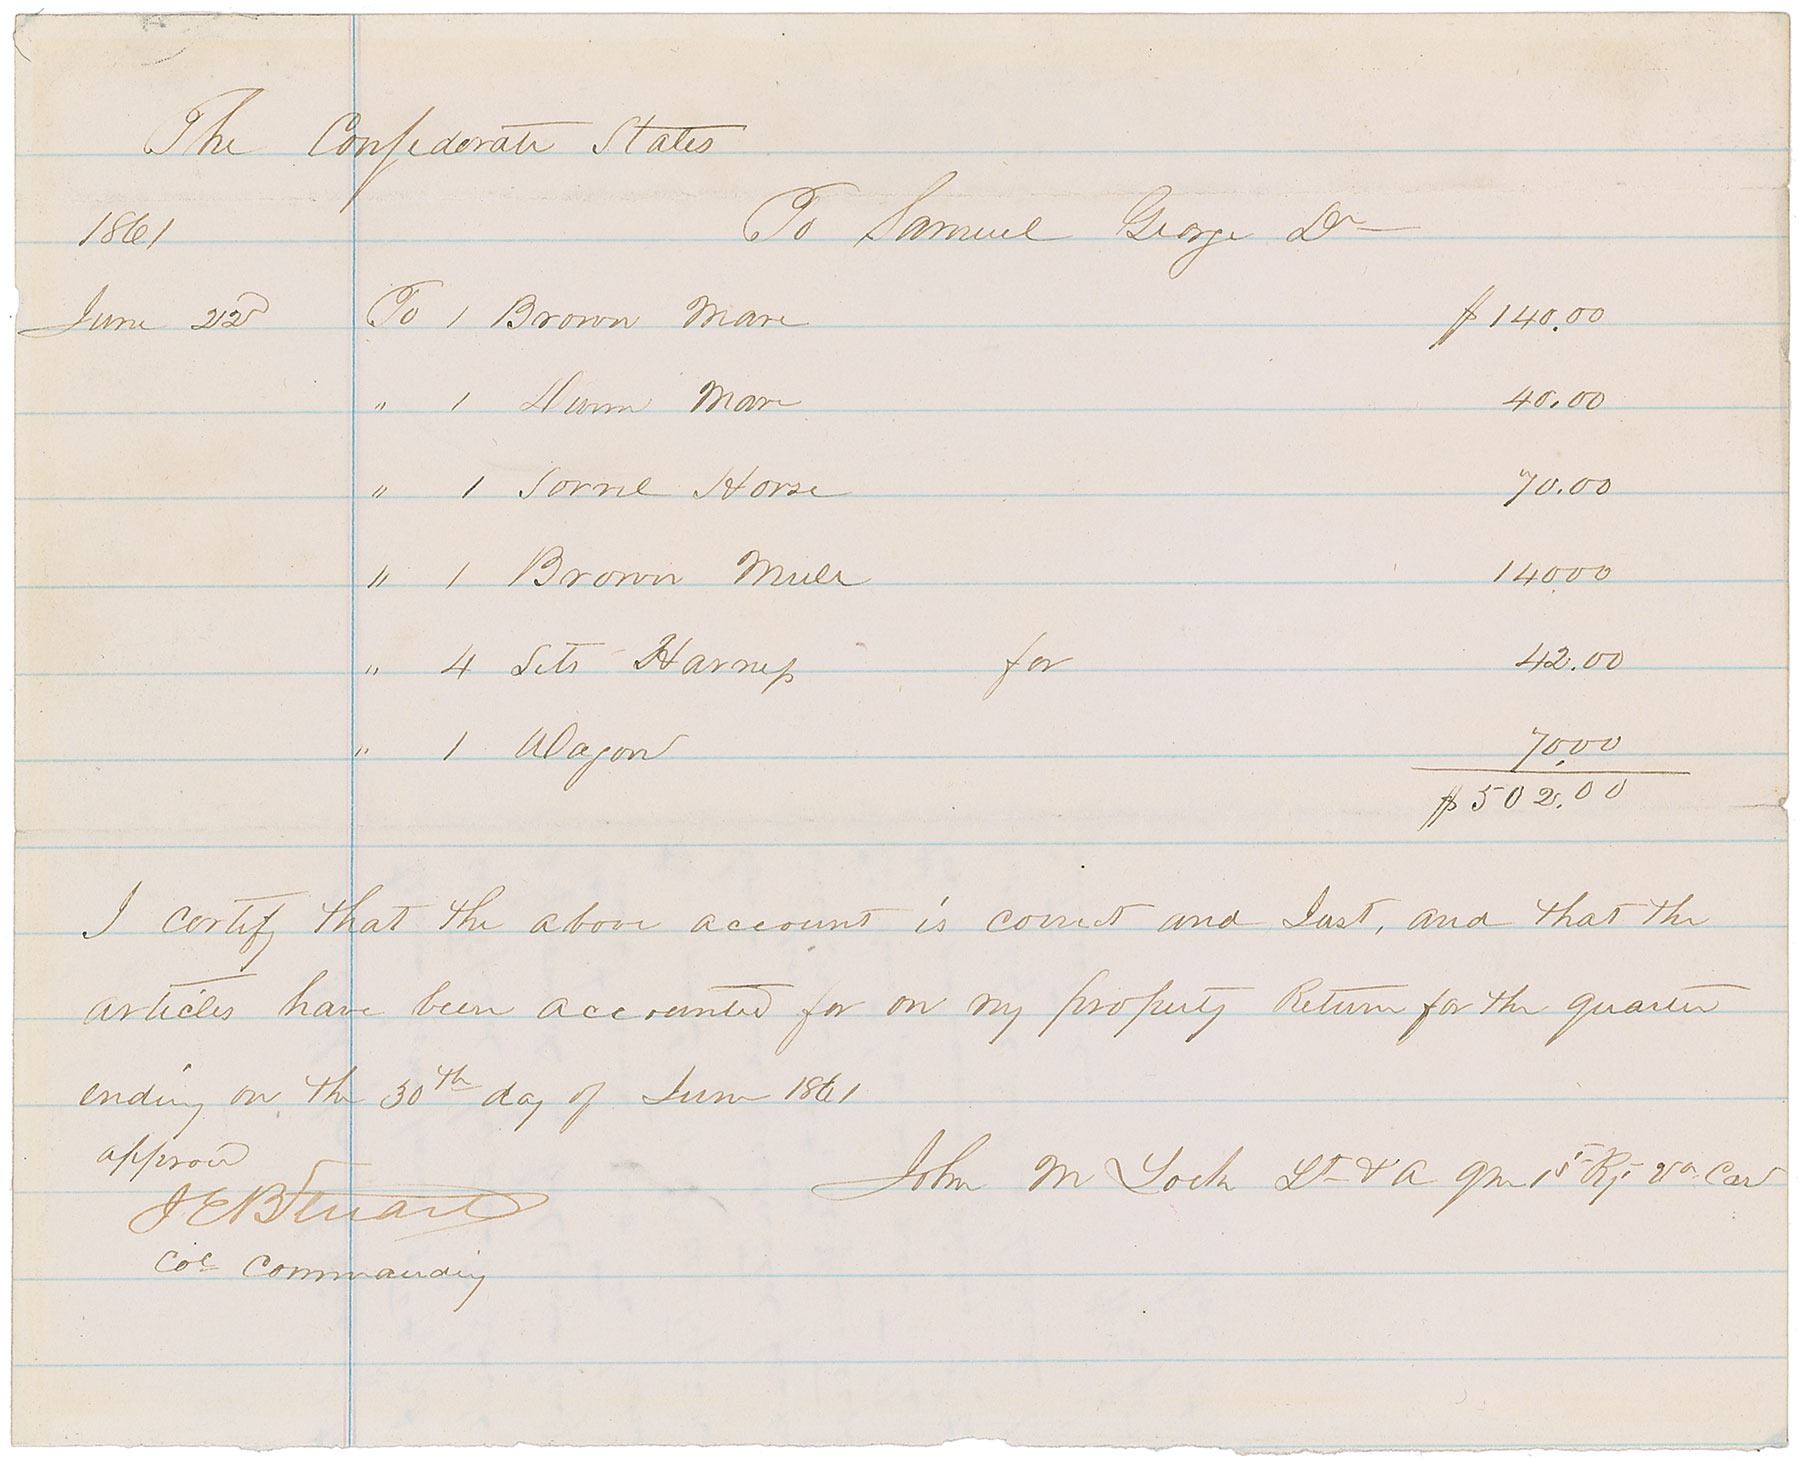 The Confederate States
1861 To Samuel George Dr
June 22d To 1 Brown Mare $140.00
" 1 Mare 40.00
" 1 Sorrel Horse 70.00
" 1 Brown Mule 140.00
" 4 Sets Harness for 42.00
" 1 Wagon 70.00
$502.00
I certify that the above account is correct and Just, and that the
articles have been accounted for on my property Return for the quarter
ending on the 30th day of June 1861
approved
John M Lt & A Qm 1st Rgt Va Cav
J E B Stuart
Col Commanding